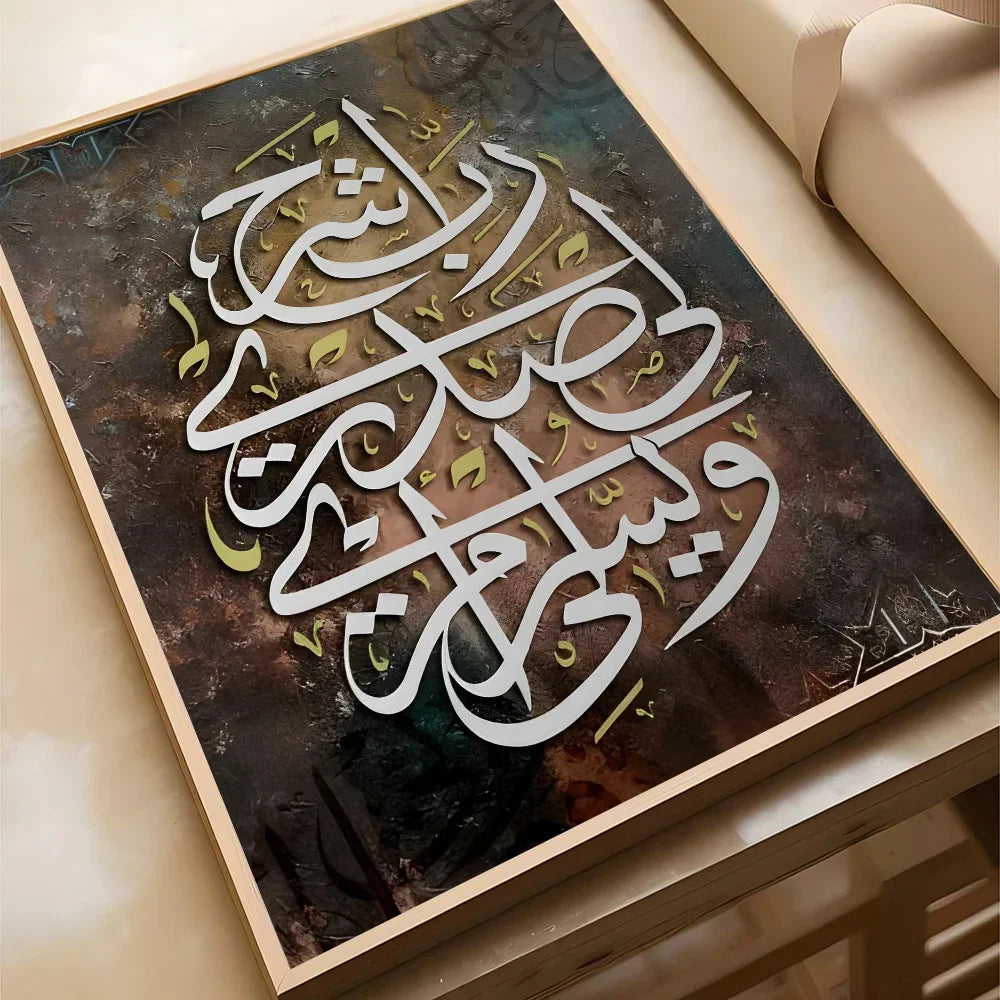 رب اشرح
لي صدري
ويسر لي أمري